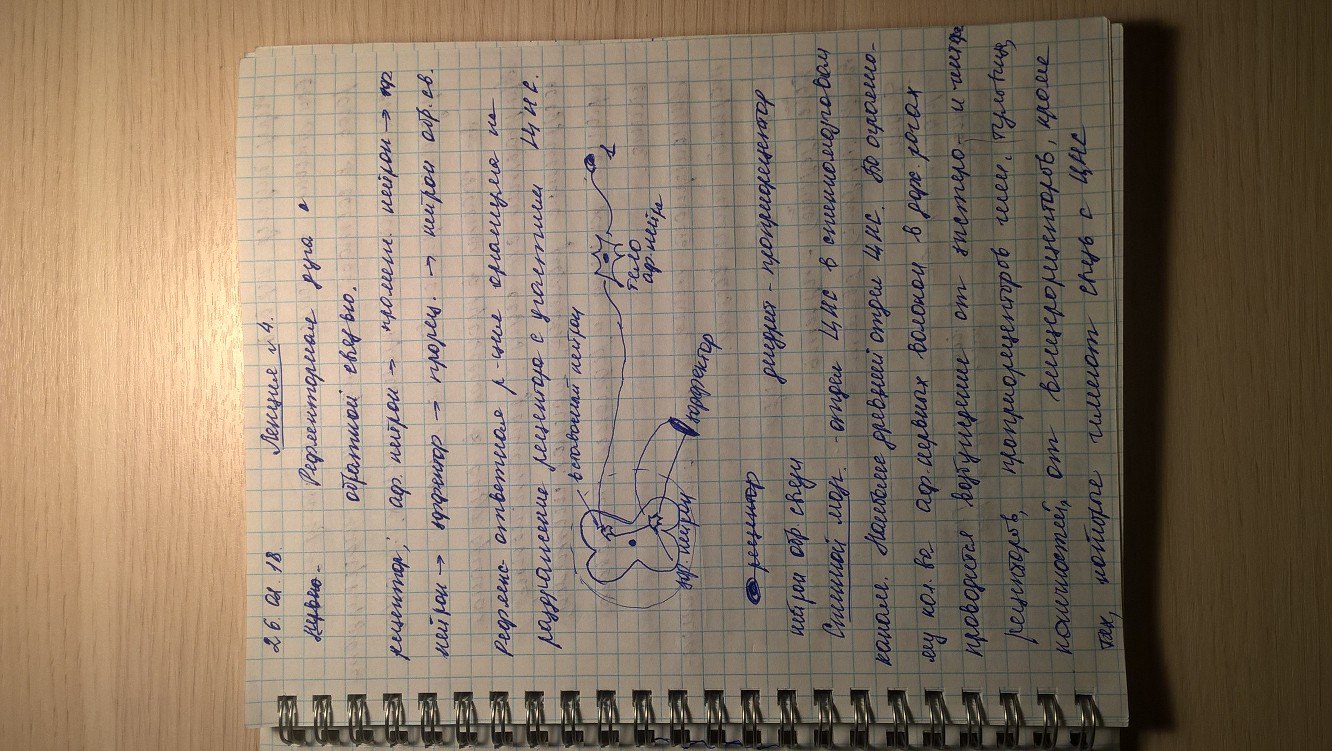 26.01.18 Лекция №4.
Нервно- Рефлекторная дуга с
обратной связью.
рецептор; аф. нейрон → промеж. нейрон → эф
нейрон → эффектор → рецеп. → нейрон обр. св.
Рефлекс ответная р-ция организма на
раздражение рецептора с участием ЦНС.
вставочный нейрон
1
тело
аф. нейр
эф. нейрон
эффектор
рецептор дендрит - проприорецептор
нейрон обр связи
Спинной мозг. - отдел ЦНС в спинномозговом
канале. Наиболее древний отдел ЦНС. По огромно-
му кол. ву аф. нервных волокон в рог. рогах
проводится возбуждение от экстеро- и интеро
рецепторов, проприорецепторов шеи, туловища,
конечностей, от висцерорецепторов, кроме
тех, которые имеют связь с ЦНС